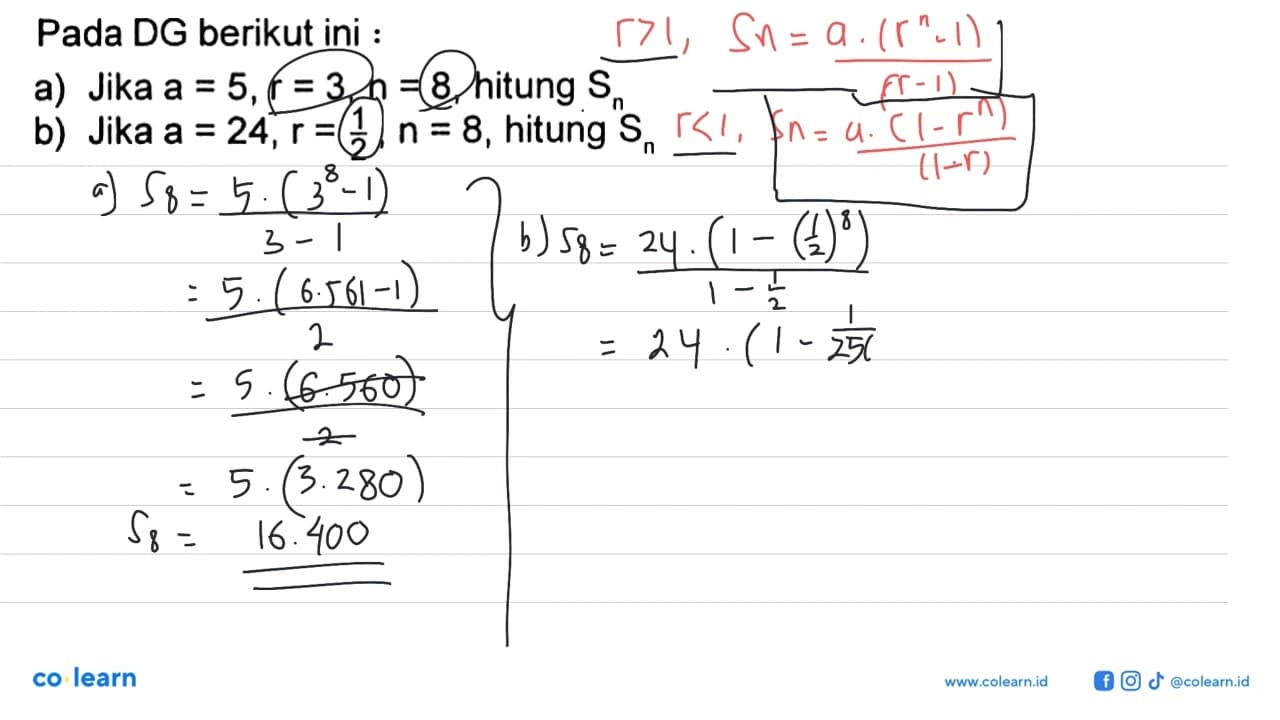 Pada DG berikut ini :
a) Jika a = 5, r = 3, n = 8, hitung Sn
b) Jika a = 24, r = 1/2, n = 8, hitung Sn
r>1, Sn = a.(r^n-1)/(r-1)
r<1, Sn = a.(1-r^n)/(1-r)
a) S8 = 5.(3^8-1)/3-1
= 5.(6.561-1)/2
= 5.(6.560)/2
= 5.(3.280)
S8 = 16.400
b) S8 = 24.(1-(1/2)^8)/1-1/2
= 24.(1-1/256
co learn
www.colearn.id
@colearn.id